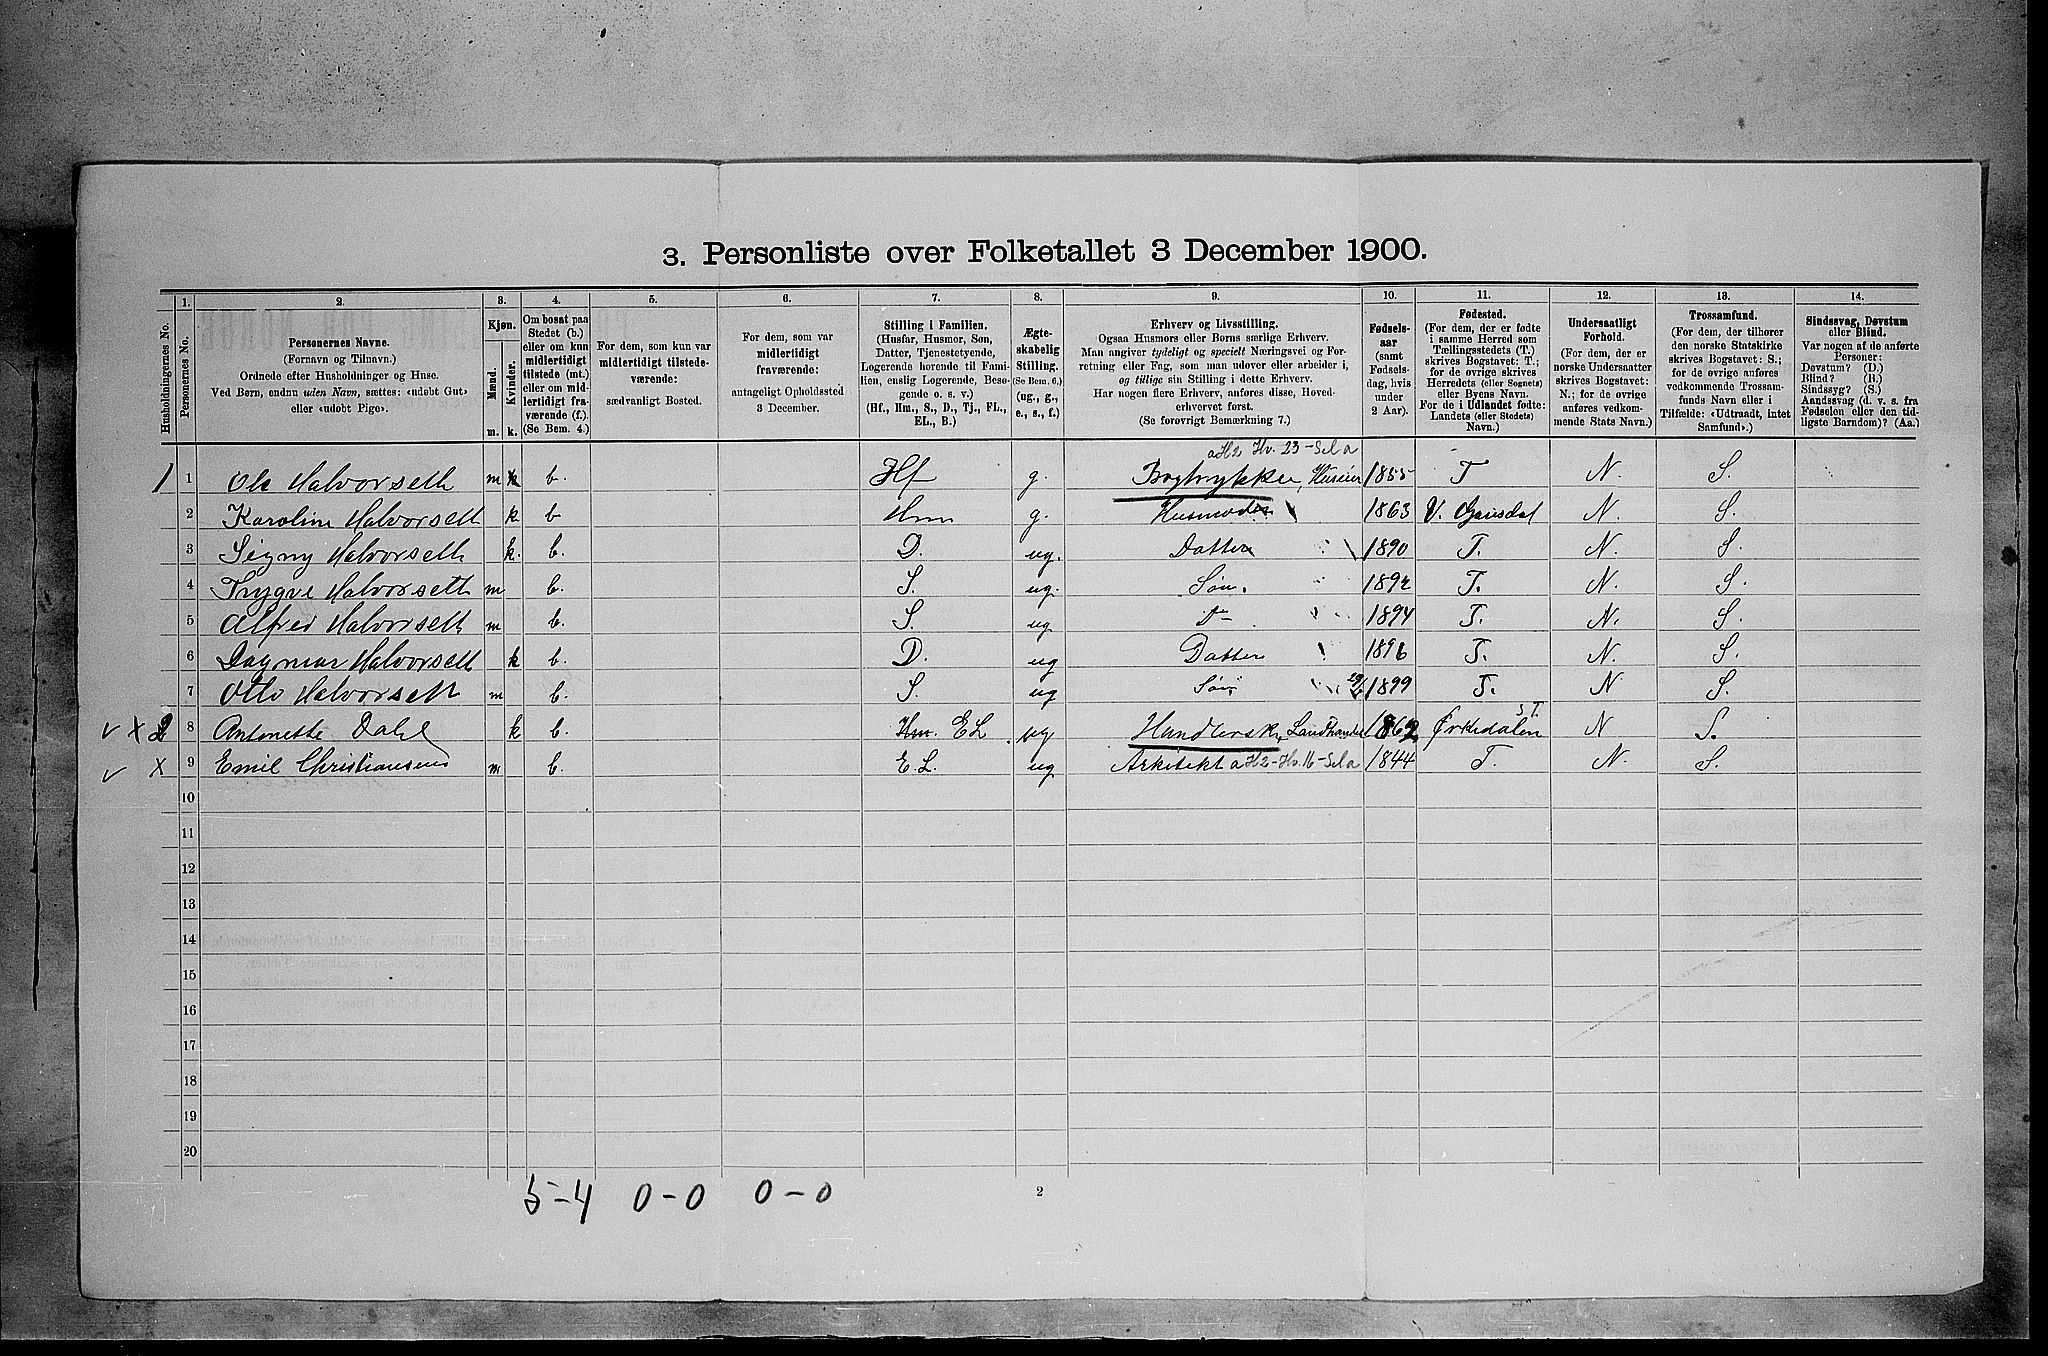 3. Personliste over Folketallet 3 December 1900.
Husholdningernes No.
1.
Personernes No.
2.
Personernes Navne.
(Fornavn og Tilnavn.)
Ordnede efter Husholdninger og Huse.
Ved Børn, endnu uden Navn, sættes: «udøbt Gut»
eller «udøbt Pige».
3.
Kjøn.
Mænd.
Kvinder.
m. k.
4.
Om bosat paa
Stedet (b.)
eller om kun
midlertidigt
tilstede (mt.)
eller om mid-
lertidigt fra-
værende (f.).
(Se Bem. 4.)
5.
For dem, som kun var
midlertidigt tilstede-
værende:
sædvanligt Bosted.
6.
For dem, som var
midlertidigt
fraværende:
antageligt Opholdssted
3 December.
7.
Stilling i Familien.
(Husfar, Husmor, Søn,
Datter, Tjenestetyende,
Logerende hørende til Fami-
lien, enslig Logerende, Besø-
gende o. s. v.)
(Hf., Hm., S., D., Tj., FL.,
EL., B.)
8.
Ægte-
skabelig
Stilling.
(Se Bem. 6.)
(ug., g.,
e., s., f.)
9.
Erhverv og Livsstilling.
Ogsaa Husmors eller Børns særlige Erhverv.
Man angiver tydeligt og specielt Næringsvei og For-
retning eller Fag, som man udøver eller arbeider i,
og tillige sin Stilling i dette Erhverv.
Har nogen flere Erhverv, anføres disse, Hoved-
erhvervet først.
(Se forøvrigt Bemærkning 7.)
10.
Fødsels-
aar
(samt
Fødsels-
dag, hvis
under
2 Aar).
11.
Fødested.
(For dem, der er fødte
i samme Herred som
Tællingsstedets (T.)
skrives Bogstavet: T.;
for de øvrige skrives
Herredets (eller Sognets)
eller Byens Navn.
For de i Udlandet fødte:
Landets (eller Stedets)
Navn.)
12.
Undersaatligt
Forhold.
(For dem, der er
norske Undersaatter
skrives Bogstavet:
N.; for de øvrige
anføres vedkom-
mende Stats Navn.)
13.
Trossamfund.
(For dem, der tilhører
den norske Statskirke
skrives Bogstavet: S.;
for de øvrige anføres
vedkommende Trossam-
funds Navn eller i
Tilfælde: «Udtraadt, intet
Samfund».)
14.
Sindssvag, Døvstum
eller Blind.
Var nogen af de anførte
Personer:
Døvstum? (D.)
Blind? (B.)
Sindssyg? (S.)
Aandssvag (d. v. s. fra
Fødselen eller den tid-
ligste Barndom)? (Aa.)
1 1 Ole Halvorseth m k b. Hf g. Bogtrykker, Huseier 1855 T N. S.
2 Karoline Halvorseth k b Hm g. Husmoder 1863 V. Gausdal N. S.
3 Signy Halvorseth k. b. D. ug. Datter 1890 T. N. S.
4 Trygve Halvorseth m b. S. ug. Søn. 1892 T. N. S.
5 Alfred Halvorseth m b. S. ug Do 1894 T. N. S.
6 Dagmar Halvorseth k b. D. ug Datter 1896 T. N. S.
7 Otto Halvorseth m b. S. ug Søn 1899 T. N S.
2 8 Antonette Dahl k b. Hm. EL ug Handlersk, Landhandel 1862 Ørkedalen S.T. N S.
9 Emil Christiansen m b. E.L. ug Arkitekt 1844 T. N. S.
10
11
12
13
14
15
16
17
18
19
20
5-4 0-0 0-0
2